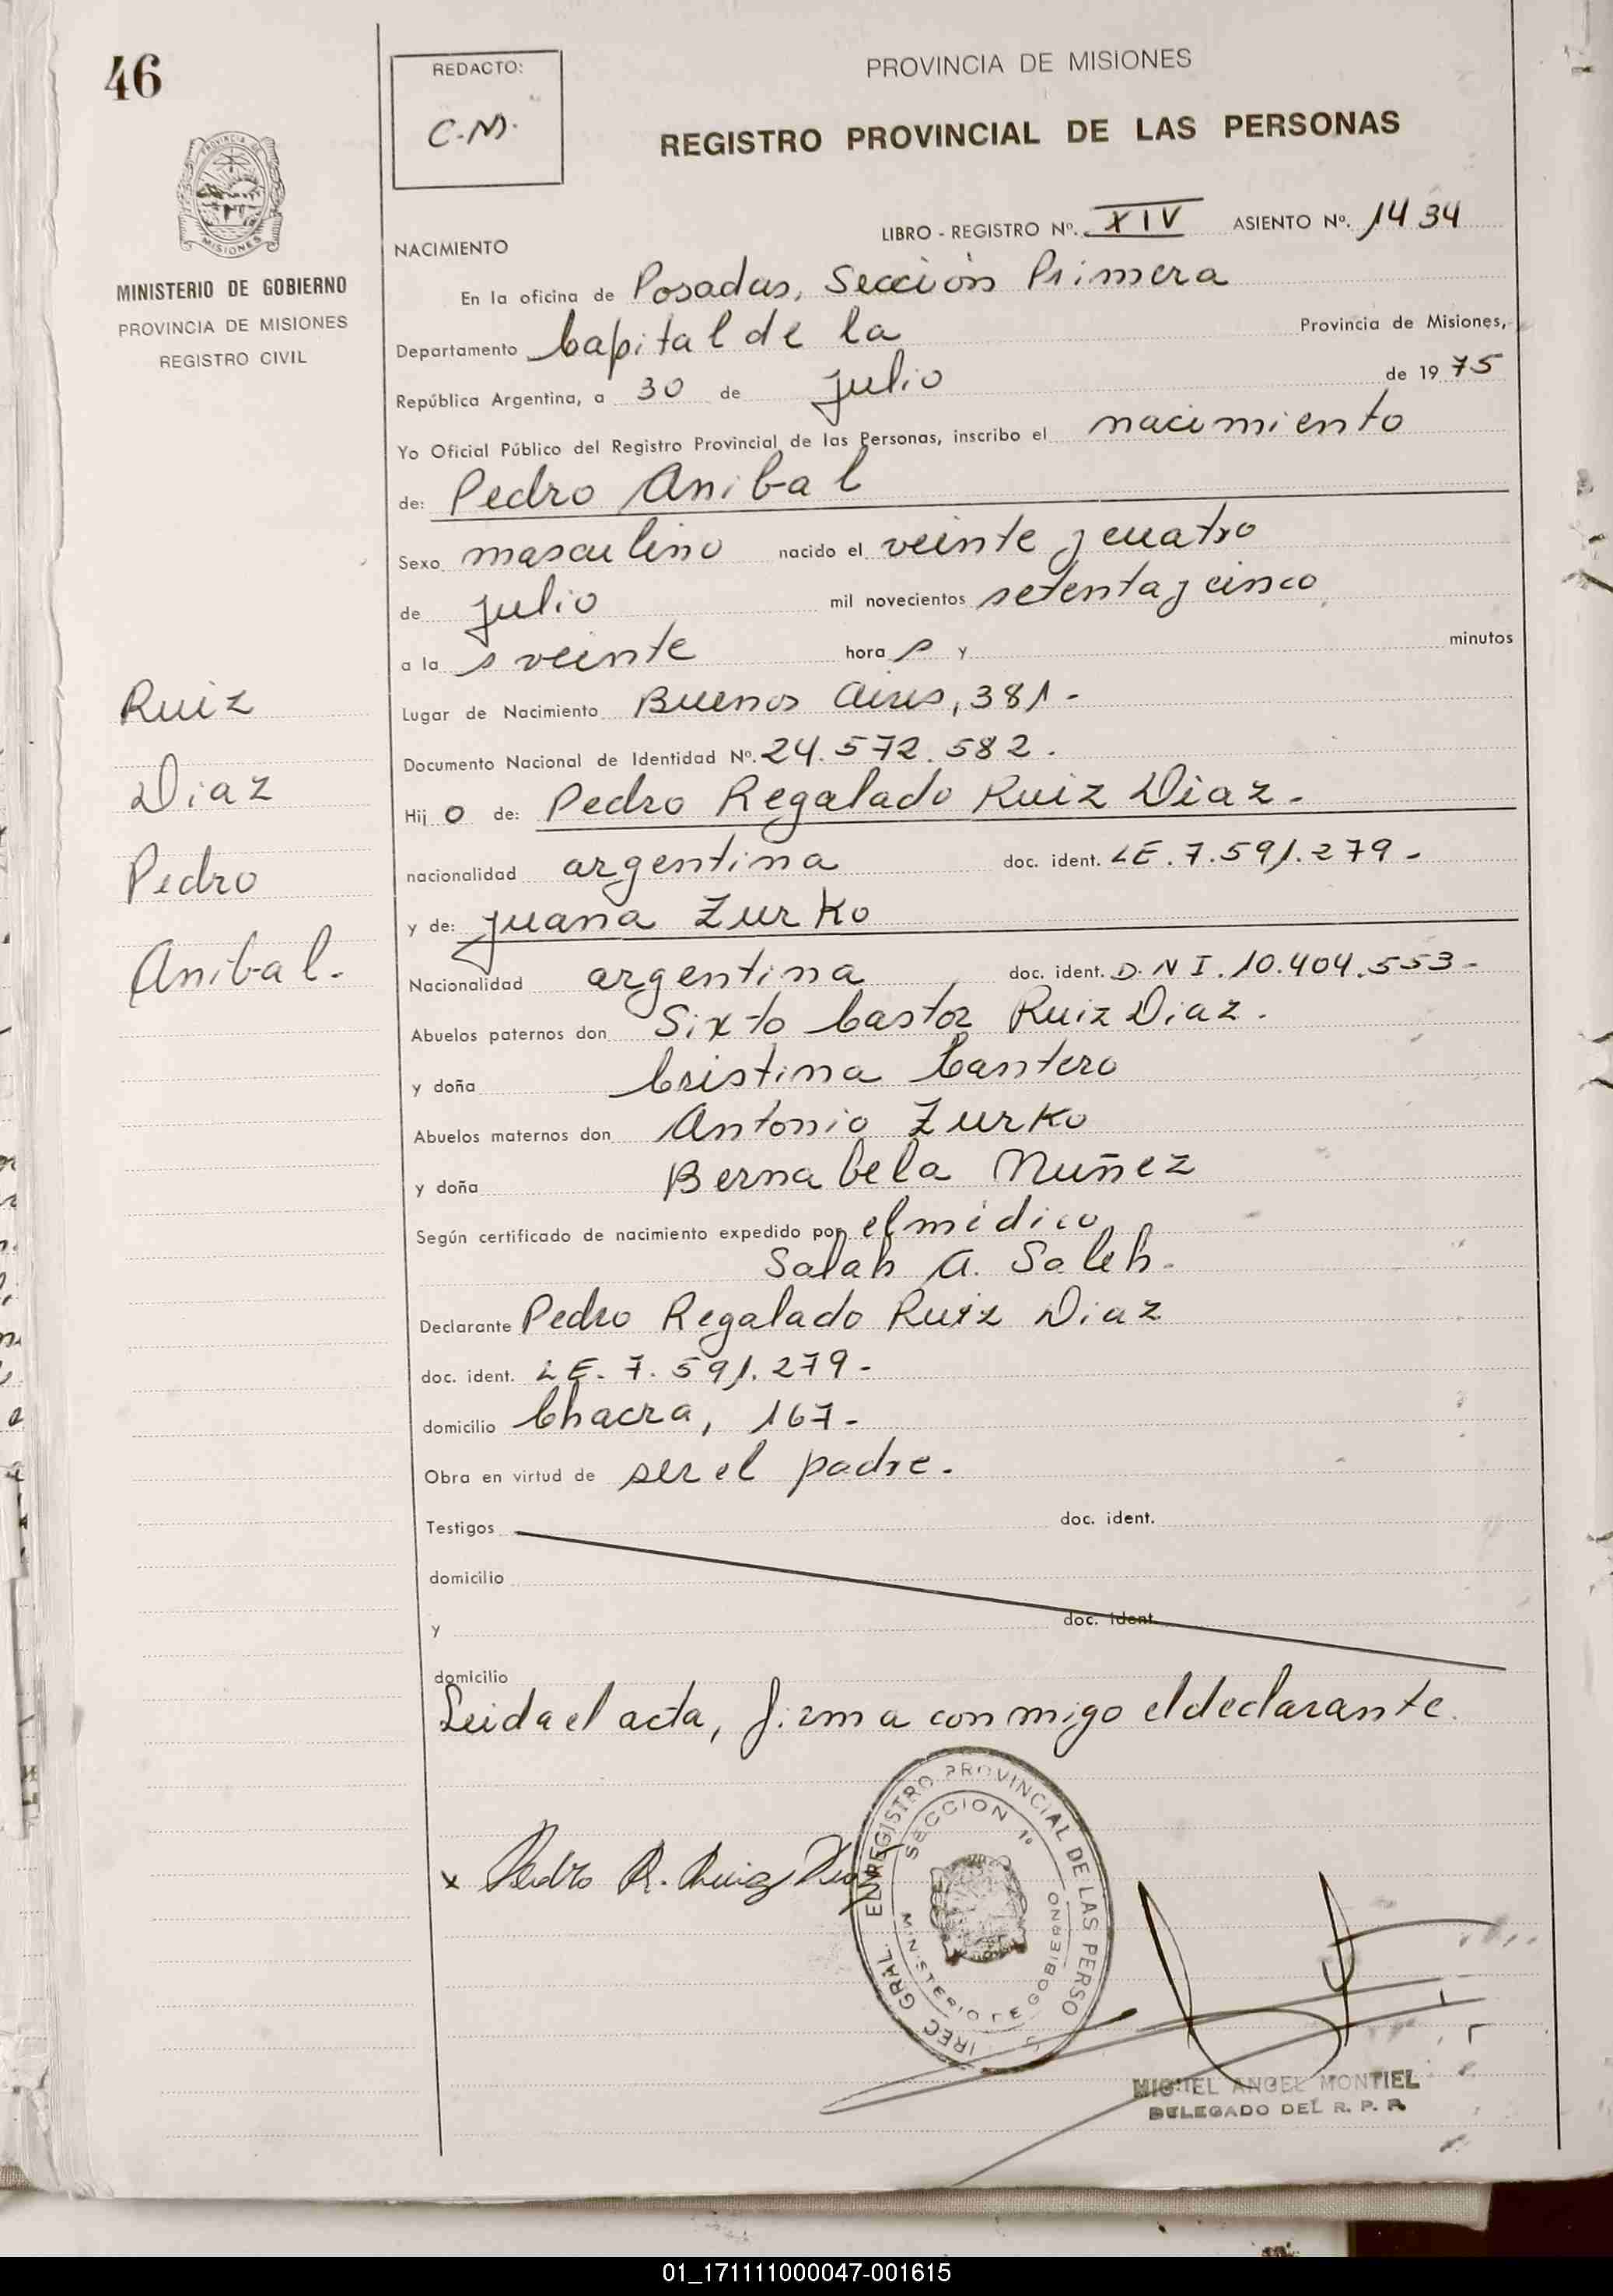 46
REDACTO:
C.M.
PROVINCIA DE MISIONES
REGISTRO PROVINCIAL DE LAS PERSONAS
PROVINCIA DE
MISIONES
MINISTERIO DE GOBIERNO
PROVINCIA DE MISIONES
REGISTRO CIVIL
LIBRO - REGISTRO Nº. XIV ASIENTO Nº. 1434
NACIMIENTO
En la oficina de Posadas, Sección Primera
Departamento Capital de la Provincia de Misiones,
República Argentina, a 30 de julio de 1975
Yo Oficial Público del Registro Provincial de las Personas, inscribo el nacimiento
de: Pedro Anibal
Sexo masculino nacido el veinte y cuatro
de julio mil novecientos setenta y cinco
a la s veinte hora s y minutos
Lugar de Nacimiento Buenos Aires, 381-
Documento Nacional de Identidad Nº. 24.572.582.
Hij o de: Pedro Regalado Ruiz Diaz.
nacionalidad argentina doc. ident. LE. 7.591.279-
y de: Juana Zurko
Nacionalidad argentina doc. ident. D.N I. 10.404.553-
Abuelos paternos don Sixto Castor Ruiz Diaz.
y doña Cristina Cantero
Abuelos maternos don Antonio Zurko
y doña Bernabela Nuñez
Según certificado de nacimiento expedido por el médico
Salah A. Saleh.
Declarante Pedro Regalado Ruiz Diaz
doc. ident. LE. 7.591.279-
domicilio Chacra, 167-
Obra en virtud de ser el padre.
Testigos doc. ident.
domicilio
y doc. ident.
domicilio
Leida el acta, firma conmigo el declarante.
Ruiz
Diaz
Pedro
Anibal.
x Pedro R. Ruiz Diaz
IREC GRAL. REGISTRO PROVINCIAL DE LAS PERSO
SECCION 1º
MINISTERIO DE GOBIERNO
MIGUEL ANGEL MONTIEL
DELEGADO DEL R. P. P.
01_171111000047-001615